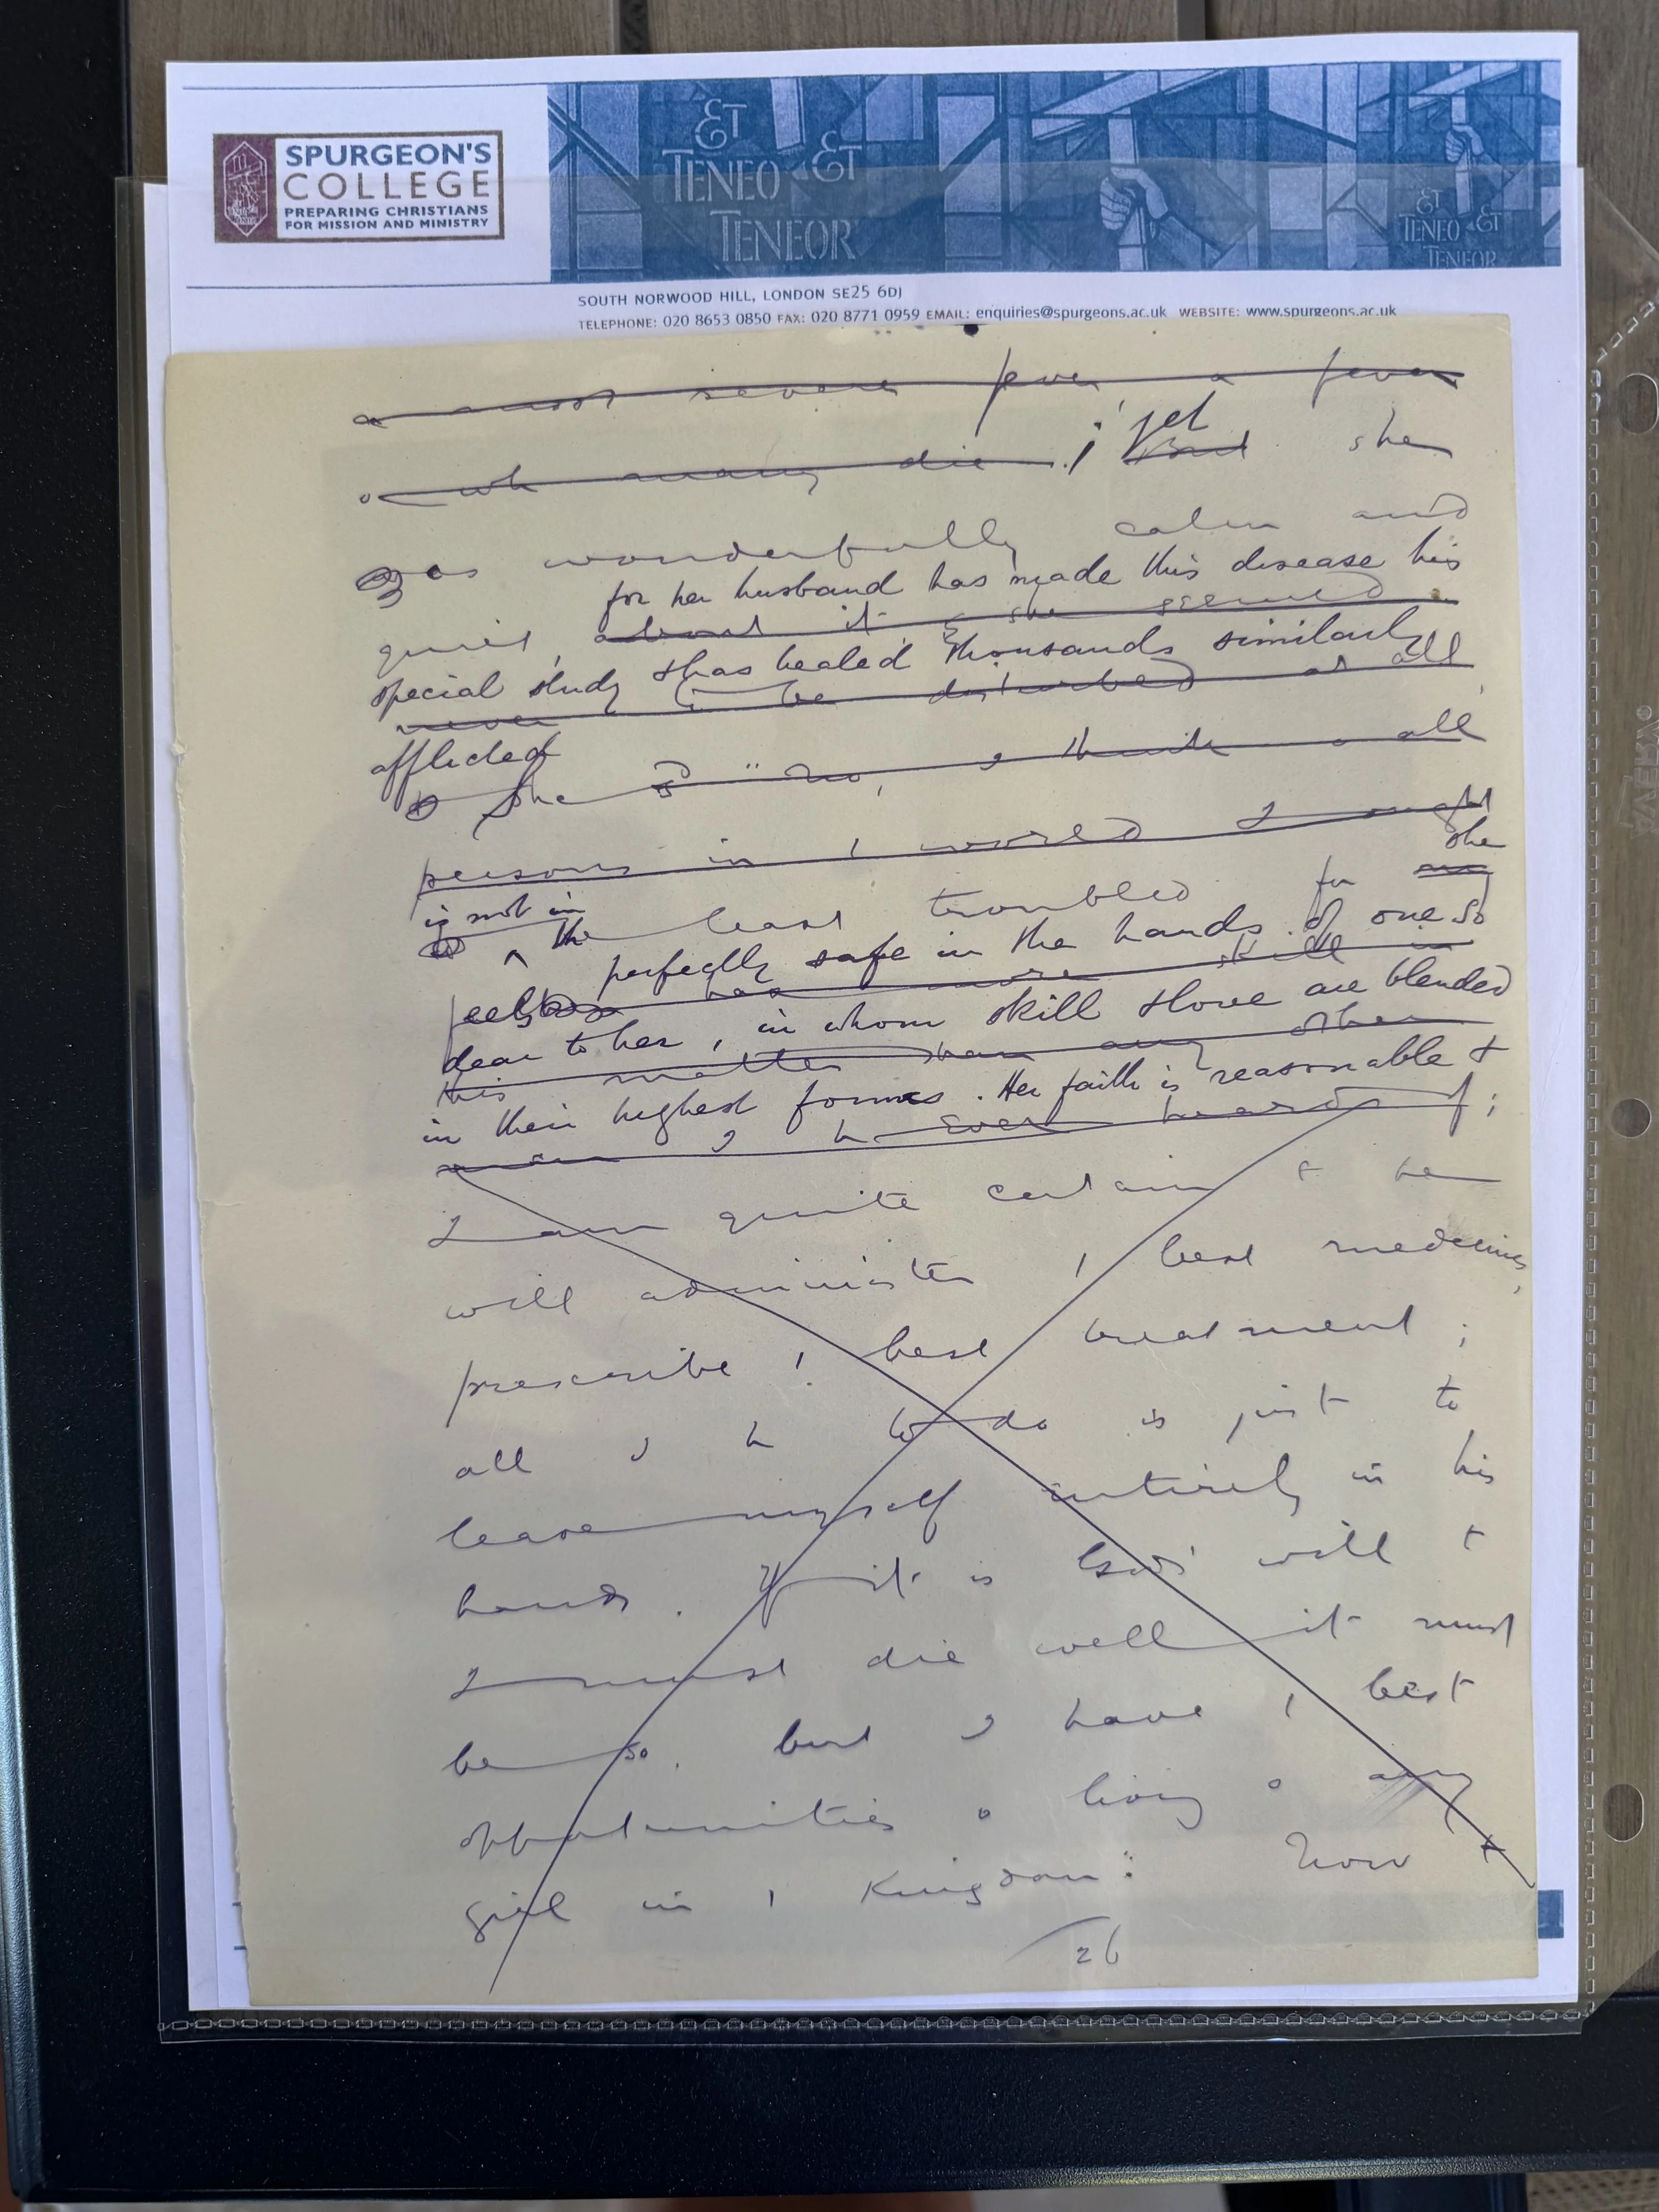 ET
TENEO ET
TENEOR
ET
TENEO ET
TENEOR
SPURGEON'S
COLLEGE
PREPARING CHRISTIANS
FOR MISSION AND MINISTRY
SOUTH NORWOOD HILL, LONDON SE25 6DJ
TELEPHONE: 020 8653 0850 FAX: 020 8771 0959 EMAIL: enquiries@spurgeons.ac.uk WEBSITE: www.spurgeons.ac.uk
a most severe fever a fever
yet
o wh many die ; But she
was wonderfully calm and
for her husband has made this disease his
quiet, about it & she seemed
special study & has healed thousands similarly
never to be disturbed at all
afflicted
She sd "No, o all
persons in / world I ought
she
is not in
the least troubled for my
perfectly safe in the hands of one so
feels has more skill in
dear to her, in whom skill & love are blended
this matter than any other
in their highest forms. Her faith is reasonable &
man I h ever heard of;
I am quite certain t he
will administer / best medicine,
prescribe / best treatment;
all I h to do is just to
leave myself entirely in his
hands. If it is God's will t
I must die well it must
be so, but I have / best
opportunities o living o any
girl in / Kingdom". Now t
26